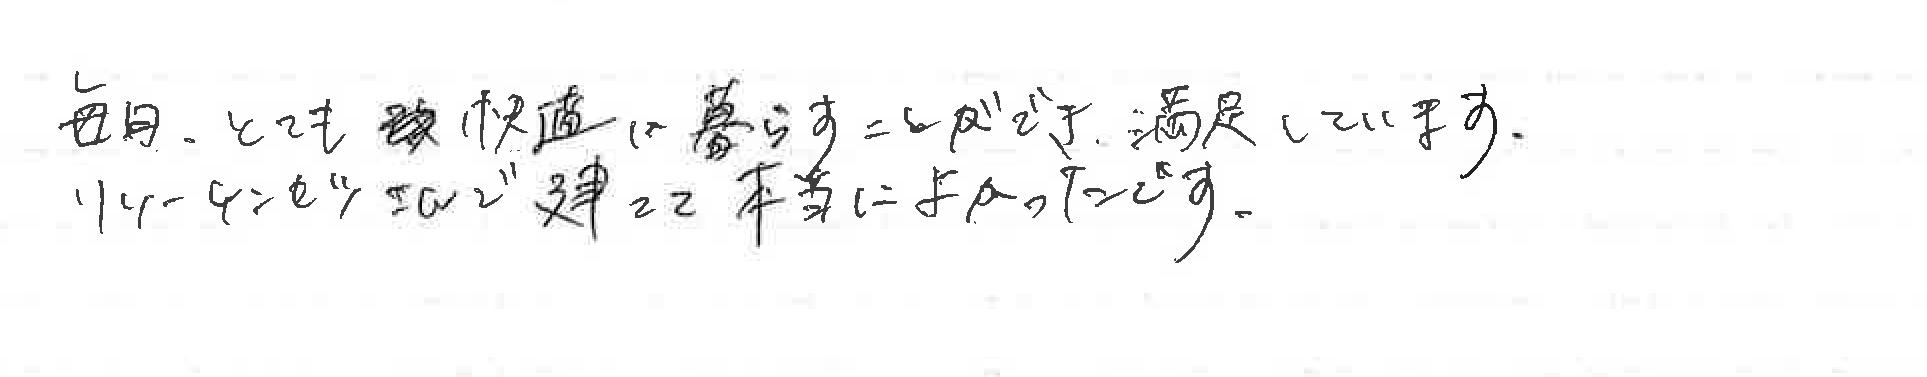 毎日、とても快適に暮らすことができ、満足しています。
リリーケンセツさんで建てて本当によかったです。